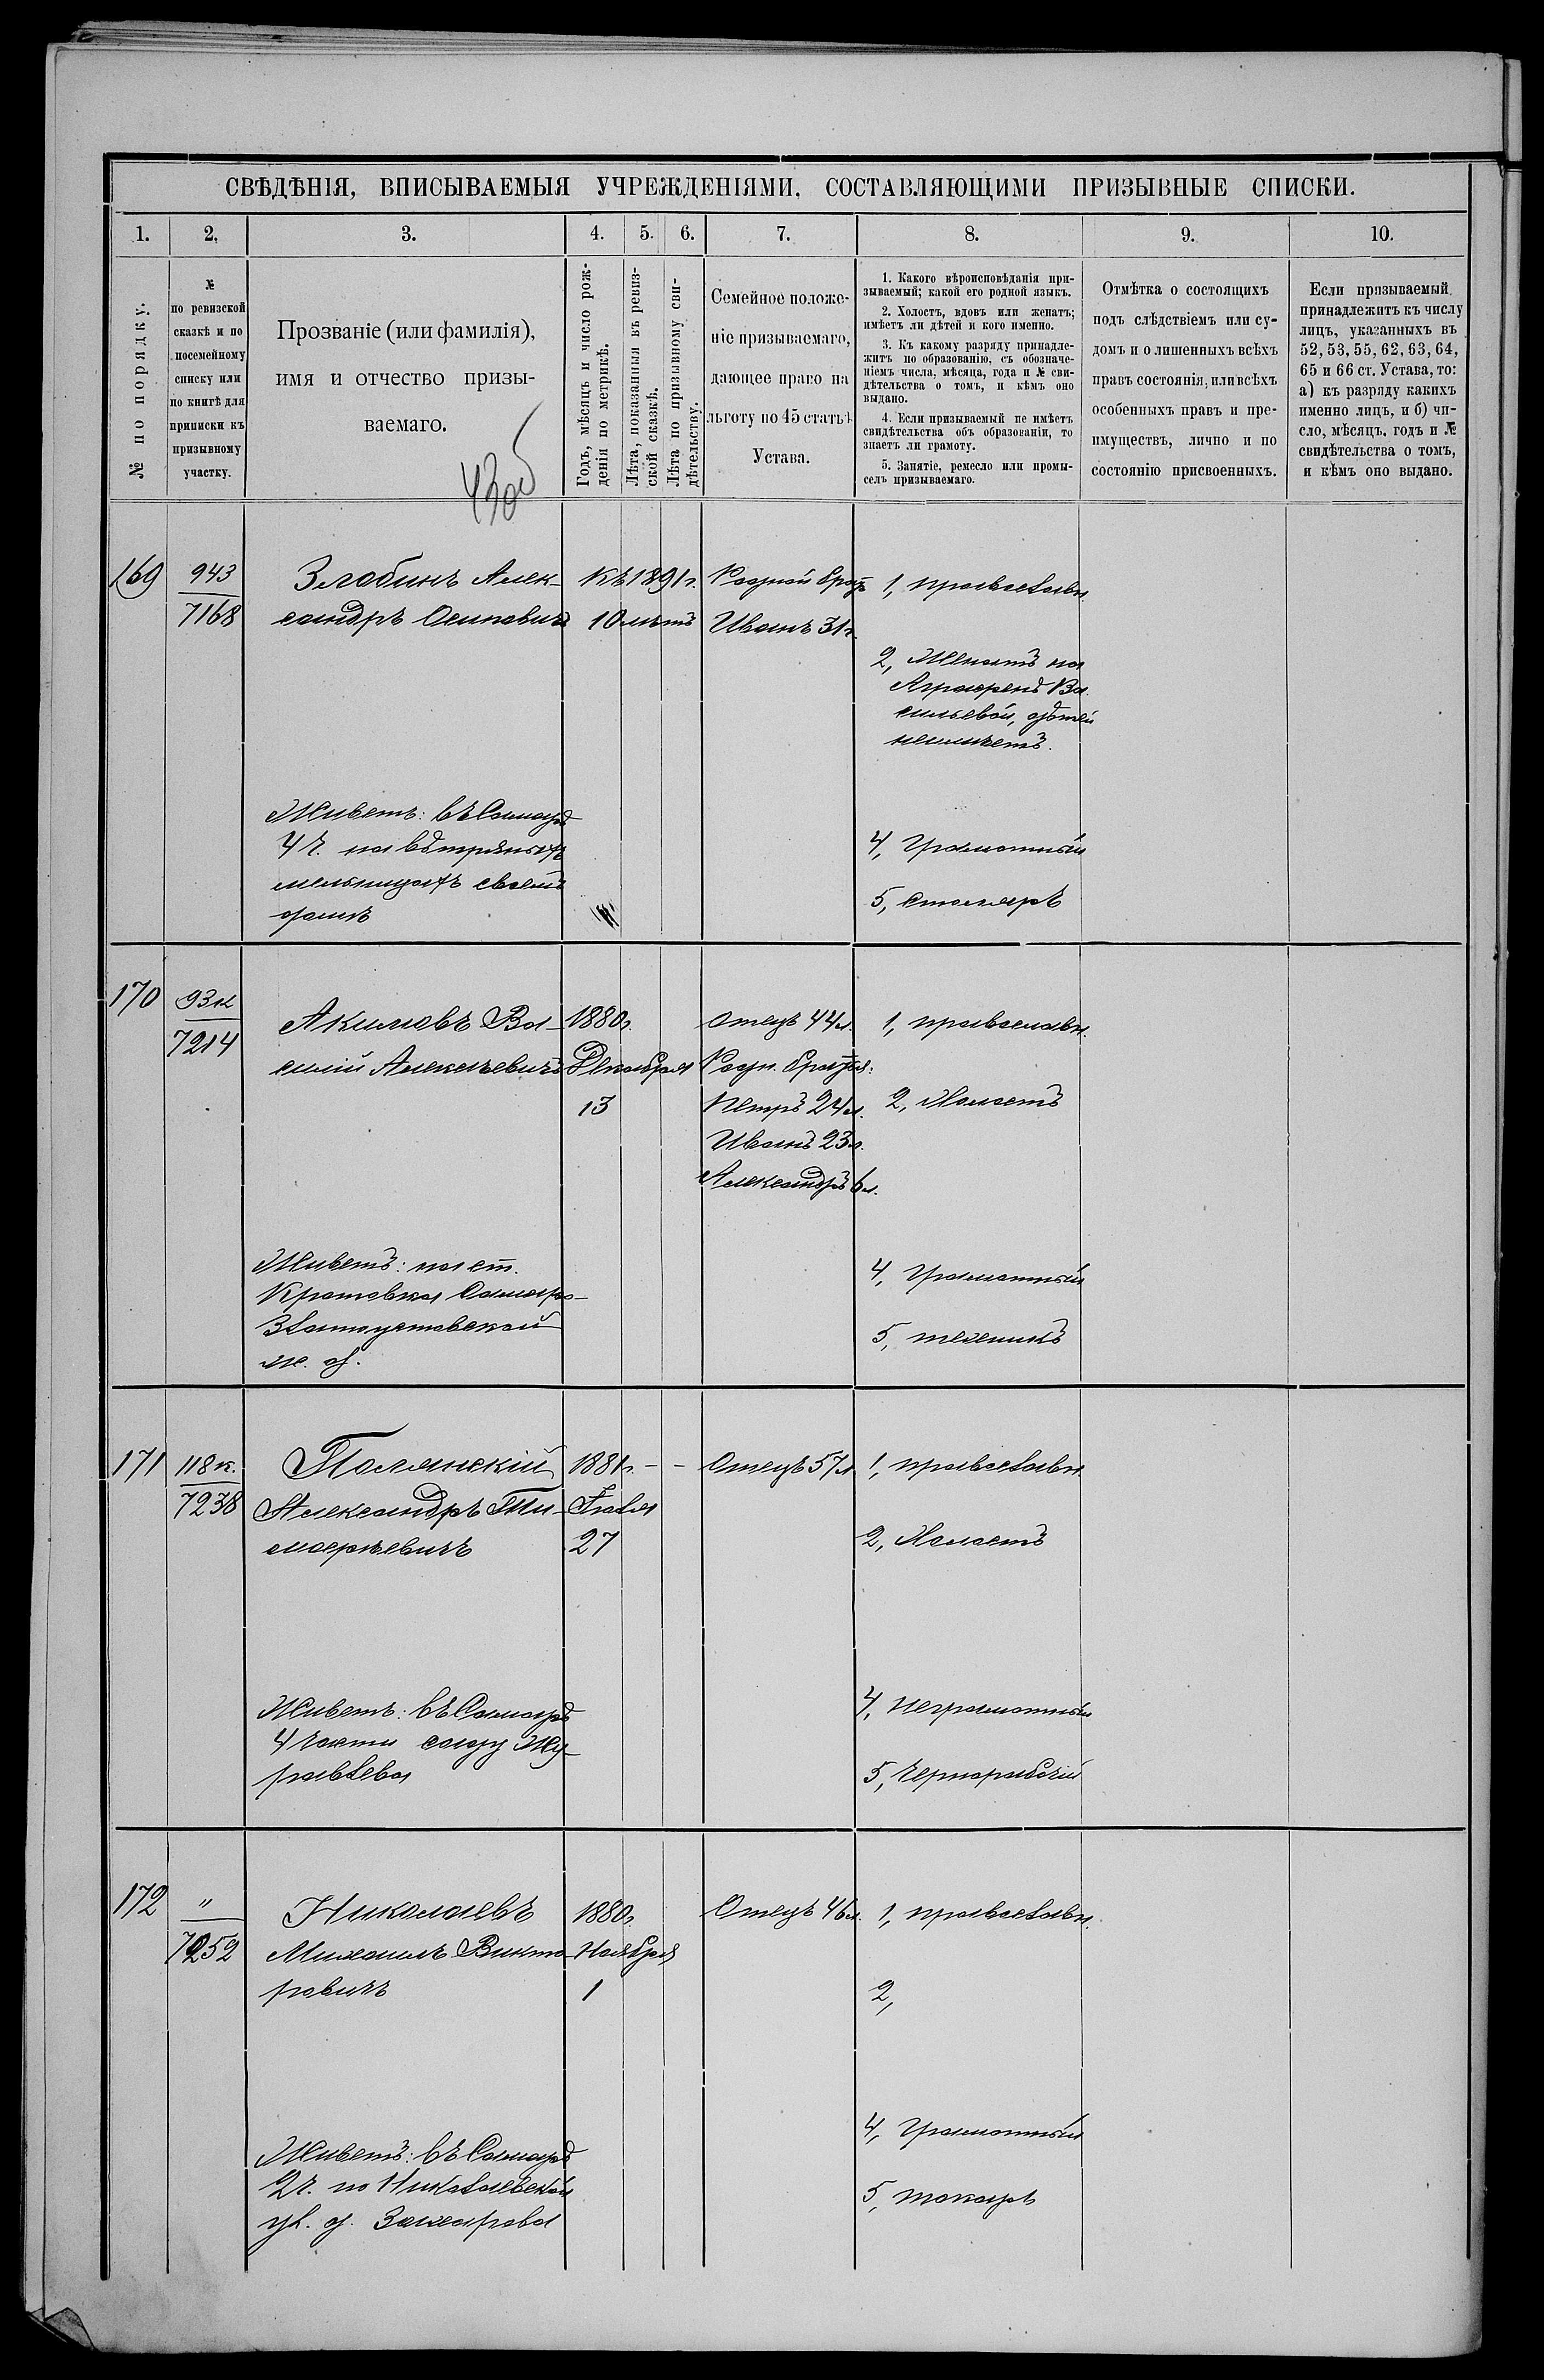 СВѢДѢНІЯ, ВПИСЫВАЕМЫЯ УЧРЕЖДЕНІЯМИ, СОСТАВЛЯЮЩИМИ ПРИЗЫВНЫЕ СПИСКИ.
1. 2. 3. 4. 5. 6. 7. 8. 9. 10.
№ по порядку.
№
по ревизской
сказкѣ и по
посемейному
списку или
по книгѣ для
приписки къ
призывному
участку.
Прозваніе (или фамилія),
имя и отчество призы-
ваемаго.
Годъ, мѣсяцъ и число рож-
денія по метрикѣ.
Лѣта, показанныя въ ревиз-
ской сказкѣ.
Лѣта по призывному сви-
дѣтельству.
Семейное положе-
ніе призываемаго,
дающее право на
льготу по 45 статьѣ
Устава.
1. Какого вѣроисповѣданія при-
зываемый; какой его родной языкъ.
2. Холостъ, вдовъ или женатъ;
имѣетъ ли дѣтей и кого именно.
3. Къ какому разряду принадле-
житъ по образованію, съ обозначе-
ніемъ числа, мѣсяца, года и № сви-
дѣтельства о томъ, и кѣмъ оно
выдано.
4. Если призываемый не имѣетъ
свидѣтельства объ образованіи, то
знаетъ ли грамоту.
5. Занятіе, ремесло или промы-
селъ призываемаго.
Отмѣтка о состоящихъ
подъ слѣдствіемъ или су-
домъ и о лишенныхъ всѣхъ
правъ состоянія, или всѣхъ
особенныхъ правъ и пре-
имуществъ, лично и по
состоянію присвоенныхъ.
Если призываемый
принадлежитъ къ числу
лицъ, указанныхъ въ
52, 53, 55, 62, 63, 64,
65 и 66 ст. Устава, то:
а) къ разряду какихъ
именно лицъ, и б) чи-
сло, мѣсяцъ, годъ и №
свидѣтельства о томъ,
и кѣмъ оно выдано.
169
943
7168
Злобинъ Алек-
сандръ Осиповичъ
Живетъ: въ Самарѣ
4 ч. на вѣтряныхъ
мельницахъ своемъ
домѣ
Къ 1891 г.
10 лѣтъ
Родной братъ
Иванъ 31 г.
1, православн.
2, Женатъ на
Аграфенѣ Ва
сильевой, дѣтей
неимѣетъ.
4, Грамотный
5, столяръ
170
93 к
7214
Акимовъ Ва-
силій Алексѣевичъ
Живетъ: на ст.
Кротовка Самаро-
Златоустовской
ж. д.
1880 г.
Декабря
13
Отецъ 44 л.
Родн. братья:
Петръ 24 л.
Иванъ 23 л.
Александръ 6 л.
1, православн.
2, Холостъ
4, Грамотный
5,
171
118 к.
7238
Полянскій
Александръ Ти-
моѳеевичъ
Живетъ: въ Самарѣ
4 части саду Жу-
равлева
1881 г. - -
Іюля
27
Отецъ 57 л
1, православн.
2, Холостъ
4, Неграмотный
5, Чернорабочій
172
"
7252
Николаевъ
Михаилъ Викто-
ровичъ
Живетъ: въ Самарѣ
2 ч. по Николаевской
ул. д. Захарова
1880 г.
Ноября
1
Отецъ 46 л.
1, православн.
2,
4, Грамотный
5, токарь